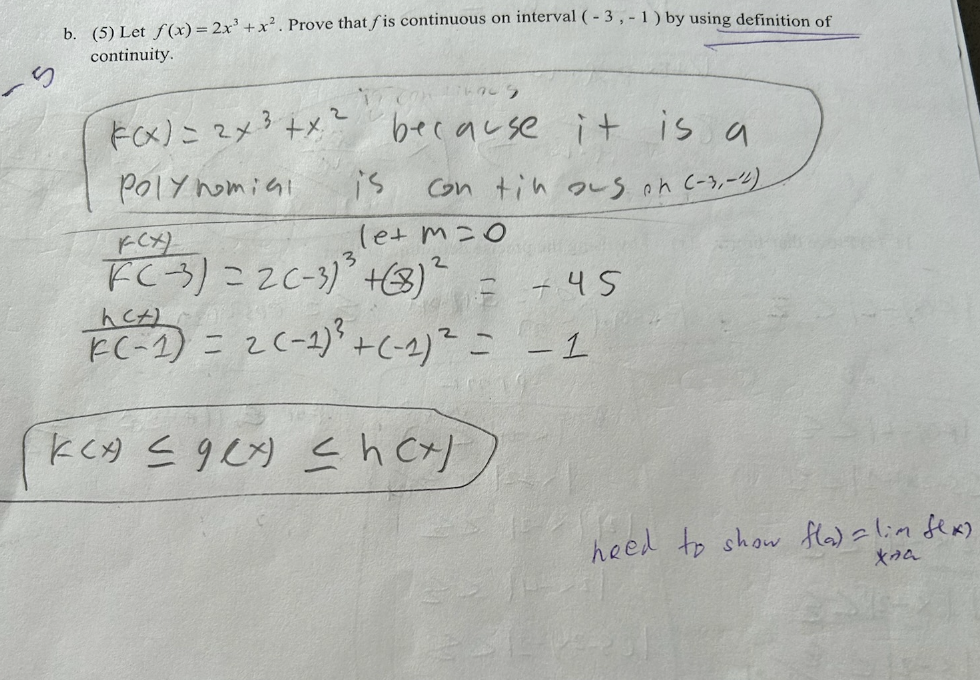 b. (5) Let f(x) = 2x³ + x². Prove that f is continuous on interval ( - 3 , - 1 ) by using definition of
continuity.
-5
F(x) = 2x³ + x² because it is a
polynomial is continous on (-3,-1)
F(x) let m = 0
F(-3) = 2(-3)³ + (-3)² = -45
h(x)
F(-1) = 2(-1)³ + (-1)² = -1
F(x) ≤ g(x) ≤ h(x)
need to show f(a) = lim f(x)
x→a